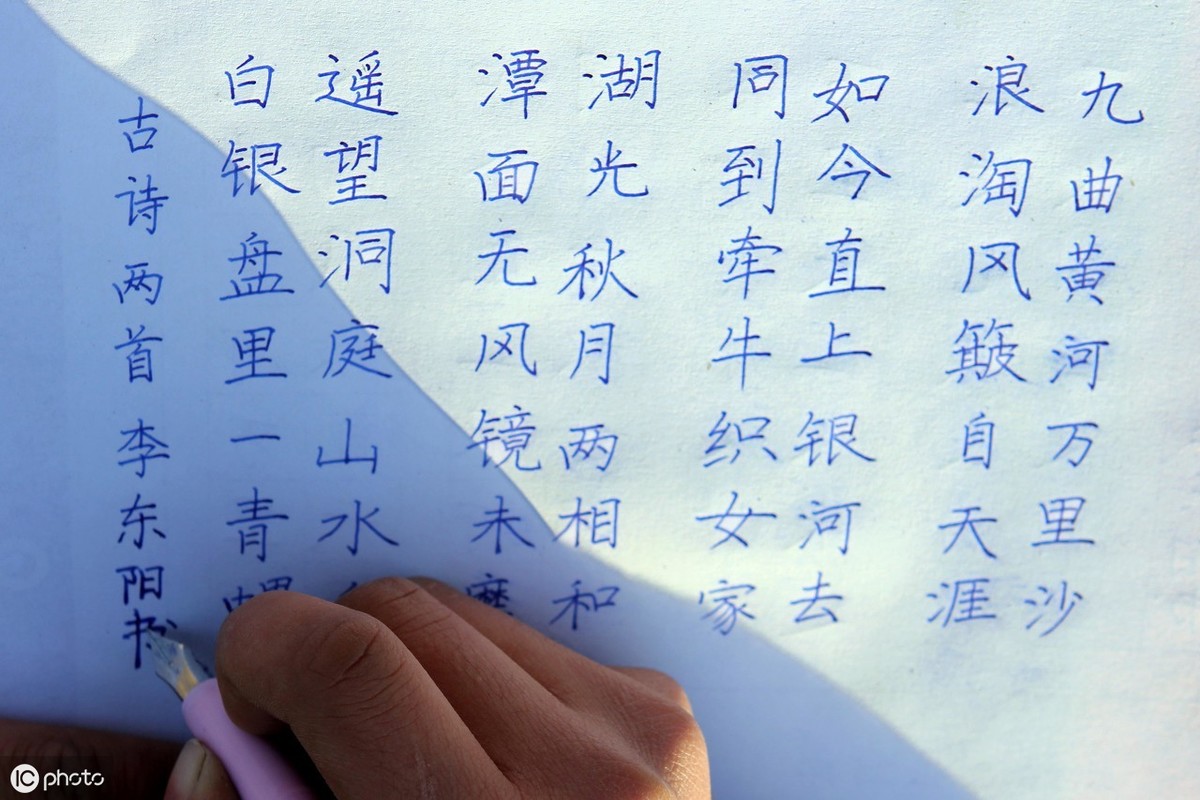 九曲黄河万里沙
浪淘风簸自天涯
如今直上银河去
同到牵牛织女家
湖光秋月两相和
潭面无风镜未磨
遥望洞庭山水
白银盘里一青螺
古诗两首李东阳书
IC photo